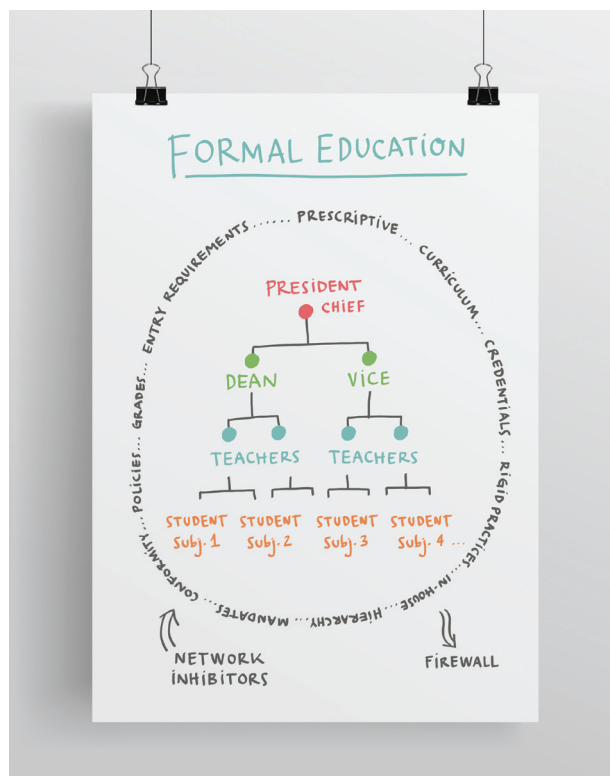 FORMAL EDUCATION
ENTRY REQUIREMENTS...... PRESCRIPTIVE... CURRICULUM... CREDENTIALS... RIGID PRACTICES... IN-HOUSE... HIERARCHY... MANDATES... CONFORMITY... POLICIES... GRADES...
PRESIDENT
CHIEF
DEAN
VICE
TEACHERS
TEACHERS
STUDENT
Subj. 1
STUDENT
Subj. 2
STUDENT
Subj. 3
STUDENT
Subj. 4 ...
NETWORK
INHIBITORS
FIREWALL